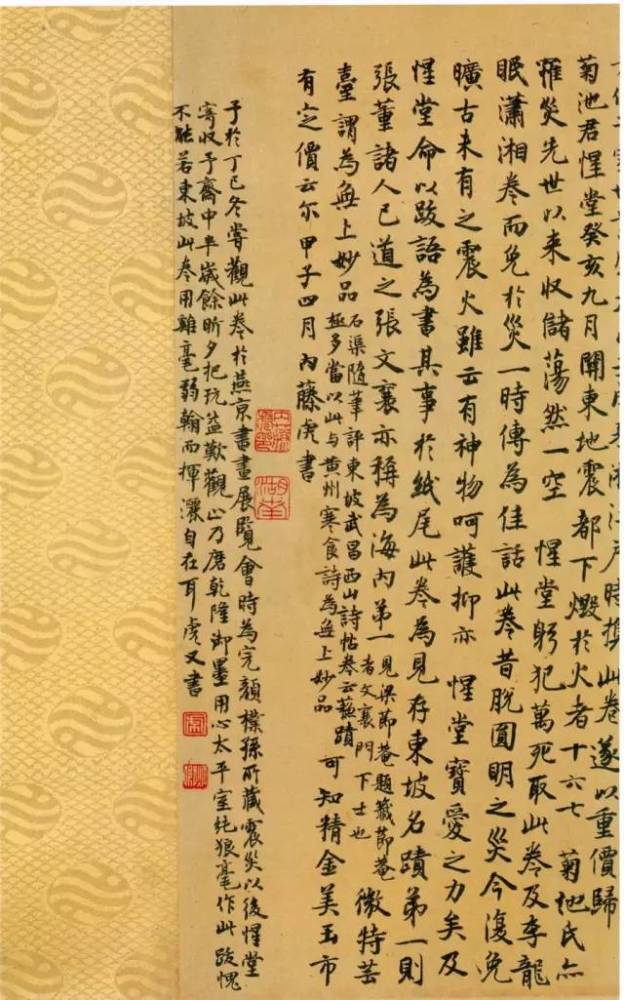 江戶時攜此卷遂以重價歸
菊池君惺堂癸亥九月關東地震都下燬於火者十六七 菊池氏亦
罹災先世以來收儲蕩然一空 惺堂躬犯萬死取此卷及李龍
眠瀟湘卷而免於災一時傳為佳話此卷昔脫圓明之災今復免
曠古未有之震火雖云有神物呵護抑亦 惺堂寶愛之力矣及
惺堂命以跋語為書其事於紙尾此卷為見存東坡名蹟第一則
張董諸人已道之張文襄亦稱為海內第一 見梁節菴題籤節菴者文襄門下士也 微特芸
臺謂為無上妙品 石渠隨筆評東坡武昌西山詩帖卷云蘇蹟極多當以此与黄州寒食詩為無上妙品 可知精金美玉市
有定價云尔甲子四月內藤虎書
予於丁巳冬嘗觀此卷於燕京書畫展覽會時為完顏樸孫所藏震災以後惺堂
寄收予齋中半歲餘昕夕把玩益歎觀止乃磨乾隆御墨用心太平室純狼毫作此跋愧
不能若東坡此卷用雞毫弱翰而揮灑自在耳虎又書